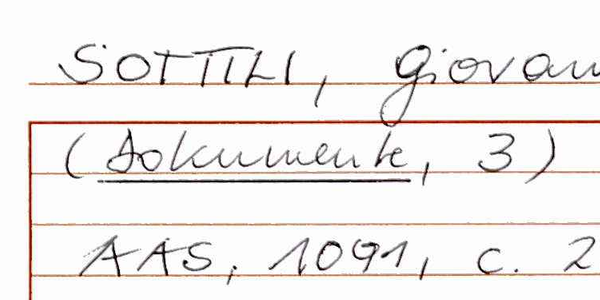 SOTTILI, Giovan
(Dokumente, 3)
AAS, 1091, c. 2